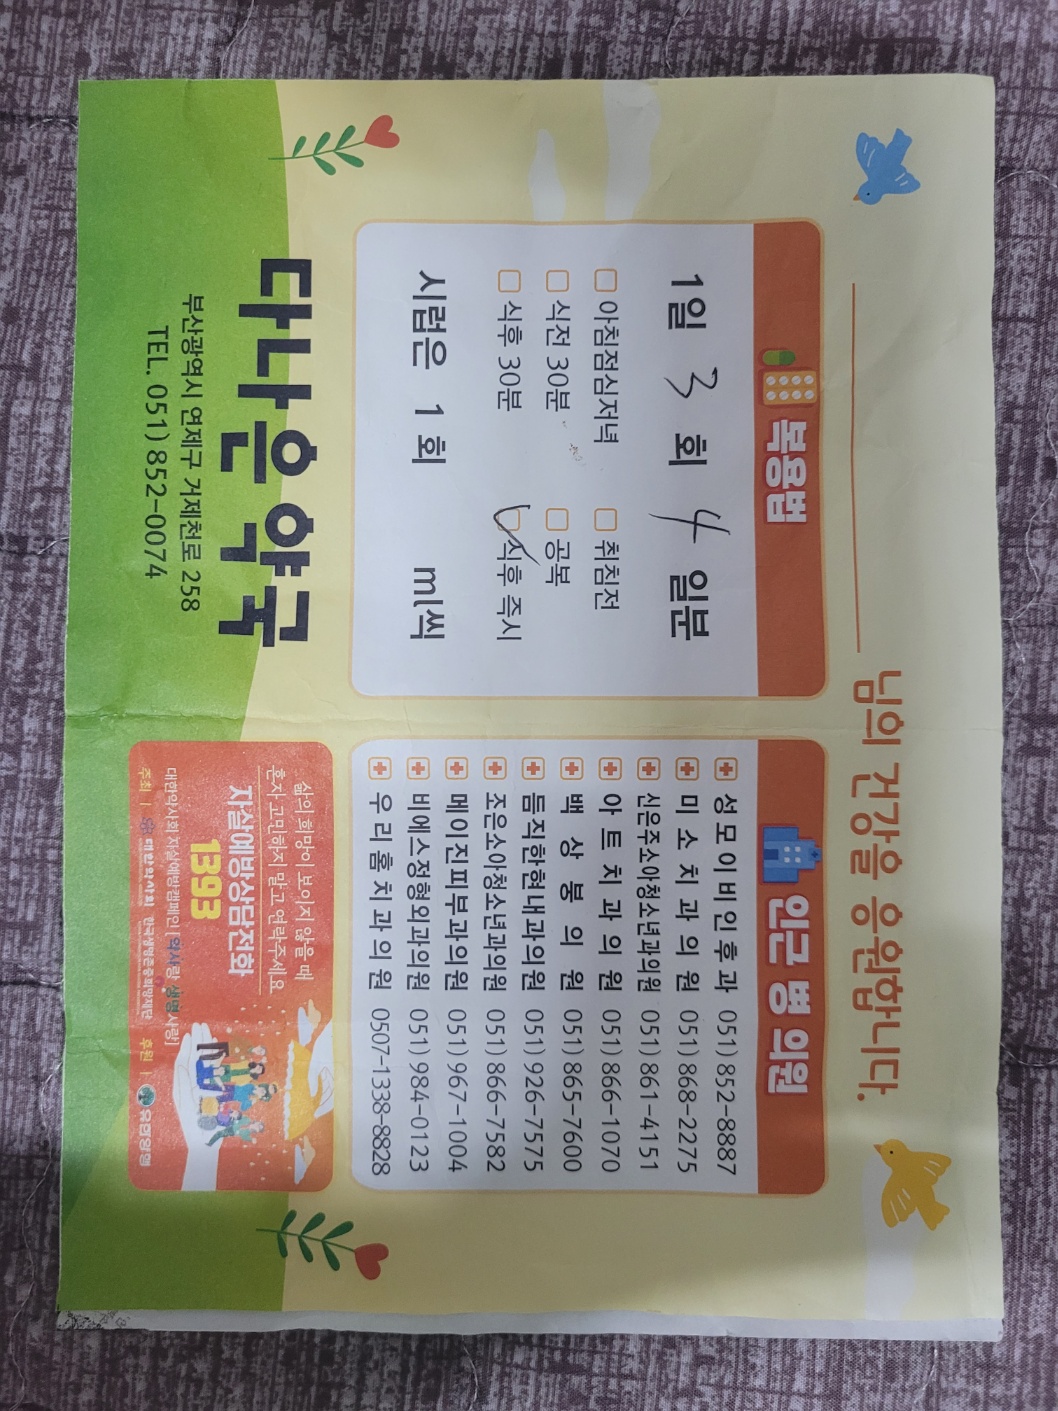 님의 건강을 응원합니다.
복용법
1일 3 회 4 일분
아침점심저녁 취침전
식전 30분 공복
식후 30분 식후 즉시
시럽은 1 회 ml씩
인근 병 의원
성모이비인후과 051)852-8887
미소치과의원 051)868-2275
신은주소아청소년과의원 051)861-4151
아트치과의원 051)866-1070
백상봉의원 051)865-7600
듬직한현내과의원 051)926-7575
조은소아청소년과의원 051)866-7582
메이진피부과의원 051)967-1004
비에스정형외과의원 051)984-0123
우리홈치과의원 0507-1338-8828
다나은약국
부산광역시 연제구 거제천로 258
TEL. 051)852-0074
삶의 희망이 보이지 않을 때
혼자 고민하지 말고 연락주세요
자살예방상담전화
1393
대한약사회 자살예방캠페인[약사랑 생명사랑]
주최 | 대한약사회 한국생명존중희망재단 후원 | 유한양행